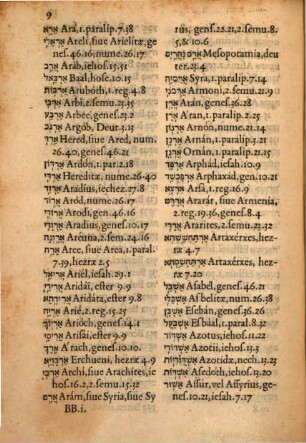 9
אָרָא Ara, 1. paralip. 7.38
אַרְאֵלִי Areli, siue Arielitæ, ge
nes. 46.16. nume. 26.17
אֲרָב Arab, iehos. 15.51
אַרְבֵאל Baal, hose. 10.15
אֲרֻבּוֹת Aruboth, 1. reg. 4.8
אַרְבִּי Arbi, 2. semu. 23.35
אַרְבַּע Arbee, genes. 23.2
אַרְגֹּב Argób, Deut. 3.13
אַרְדְּ Hered, siue Ared, num.
26.40, genes. 46.21
אַרְדּוֹן Ardón, 1. par. 2.18
אַרְדִּי Hereditæ, nume. 26.40
אַרְוָדִי Aradius, iechez. 27.8
אֲרוֹד Aród, nume. 26.17
אֲרוֹדִי Arodi, gen. 46.16
אַרְוָדִי Aradius, genes. 10.17
Aréuna, 2. sem. 24.16
אָרַח Arec, siue Area, 1. paral.
7.39, hezræ 2.5
אֲרִיאֵל Ariél, iesah. 29.1
אֲרִידַי Aridái, ester 9.9
אֲרִידָתָא Aridáta, ester 9.8
אַרְיֵה Arié, 2. reg. 15.25
אַרְיוֹךְ Arióch, genes. 14.1
אֲרִיסַי Arisái, ester 9.9
אֶרֶךְ A'rach, gene. 10.10
אַרְכְּוָיֵא Erchueni, hezræ 4.9
אַרְכִּי Archi, siue Arachites, ie
hos. 16.2, 2. semu. 15.32
אֲרָם Arám, siue Syria, siue Sy
BB. i.
rus, gene. 22.21, 2. semu. 8.
5, & 10.6
אֲרַם נַהֲרַיִם Mesopotamia, deu
ter. 23.4
אֲרַמִּיָּה Syra, 1. paralip. 7.14
אַרְמֹנִי Armoni, 2. semu. 21.9
אֲרָן Arán, gene. 36.28
אֹרֶן A'ran, 1. paralip. 2.25
אַרְנוֹן Arnón, nume. 21.14
אַרְנָן Arnán, 1. paralip. 3.21
אָרְנָן Ornán, 1. paralip. 21.15
אַרְפָּד Arphád, iesah. 10.9
אַרְפַּכְשַׁד Arphaxad, gen. 10.21
אַרְצָא Arsá, 1. reg. 16.9
אֲרָרָט Ararát, siue Armenia,
2. reg. 19.36, gene. 8.4
אֲרָרִי Ararites, 2. semu. 23.32
אַרְתַּחְשַׁשְׂתָּא Artaxérxes, hez-
ræ 4.7
אַרְתַּחְשַׁסְתְּא Artaxérxes, hez-
ræ 7.20
אַשְׁבֵּל Asabel, gene. 46.21
אַשְׁבֵּלִי Asbelitæ, num. 26.38
אֶשְׁבָּן Eseban, gene. 36.26
אֶשְׁבַּעַל Esbáal, 1. paral. 8.33
אַשְׁדּוֹד Azotus, iehos. 11.22
אַשְׁדּוֹדִי Azotii, iehos. 13.3
אַשְׁדּוֹדִיּוֹת Azotidæ, nech. 13.23
אַשְׁדּוֹת Asedeth, iehos. 13.20
אַשּׁוּר Assúr, vel Assyrius, ge-
nes. 10.11, iesah. 7.17